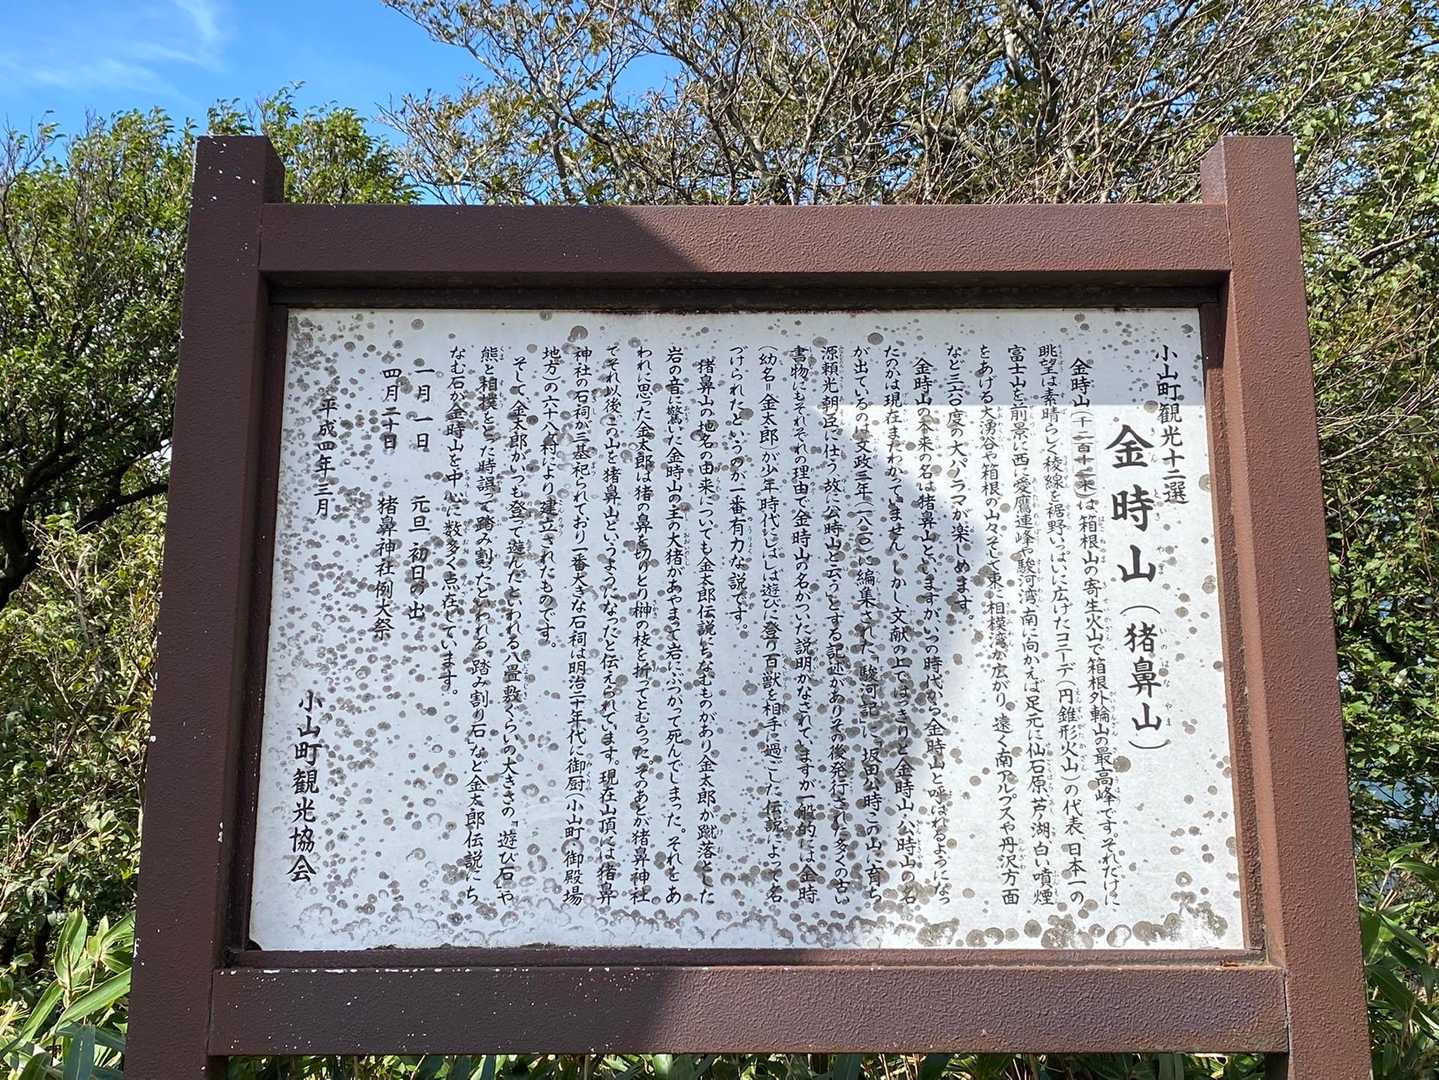 小山町観光十二選
金時山（猪鼻山）
金時山（千二百十二米）は箱根山の寄生火山で箱根外輪山の最高峰です。それだけに
眺望は素晴らしく稜線を裾野いっぱいに広げたコニーデ（円錐形火山）の代表、日本一の
富士山を前景に西へ愛鷹連峰や駿河湾、南に向かえば足元に仙石原、芦ノ湖、白い噴煙
をあげる大湧谷や箱根の山々、そして東に相模湾が広がり、遠く南アルプスや丹沢方面
など三六〇度の大パノラマが楽しめます。
金時山の本来の名は猪鼻山といいますが、いつの時代から金時山と呼ばれるようになっ
たのかは現在まだわかっていません。しかし文献の上ではっきりと金時山・公時山の名
が出ているのは、文政三年（一八二〇）に編集された「駿河記」に、坂田公時この山に育ち
源頼光朝臣に仕う故に公時山と云うとする記述があり、その後発行された多くの古い
書物にもそれぞれの理由で金時山の名がついた説明がなされていますが一般的には金時
（幼名＝金太郎）が少年時代にしばしば遊びに登り百獣を相手に過ごした伝説によって名
づけられたというのが一番有力な説です。
猪鼻山の地名の由来についても金太郎伝説にちなむものがあり金太郎が蹴落とした
岩の音に驚いた金時山の主の大猪があやまって岩にぶつかって死んでしまった。それをあ
われに思った金太郎は猪の鼻を切りとり榊の枝を折ってとむらった。そのあとが猪鼻神社
でそれ以後この山を猪鼻山というようになったと伝えられています。現在山頂には猪鼻
神社の石祠が三基祀られており一番大きな石祠は明治二十年代に御厨（小山町・御殿場
地方）の六十八ヶ村により建立されたものです。
そして、金太郎がいつも登って遊んだといわれる八畳敷くらいの大きさの「遊び石」や
熊と相撲をとった時誤って踏み割ったといわれる「踏み割り石」など金太郎伝説にち
なむ石が金時山を中心に数多く点在しています。
一月一日　元旦　初日の出
四月二十日　猪鼻神社例大祭
平成四年三月
小山町観光協会